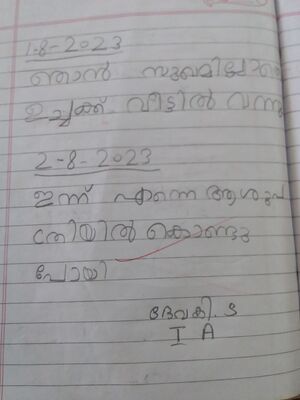 1-8-2023
ഞാൻ സുഖമില്ലാതെ
ഉച്ചക്ക് വീട്ടിൽ വന്നു
2-8-2023
ഇന്ന് എന്നെ ആശുപ
ത്രിയിൽ കൊണ്ടു
പോയി
ദേവകി. S
I A